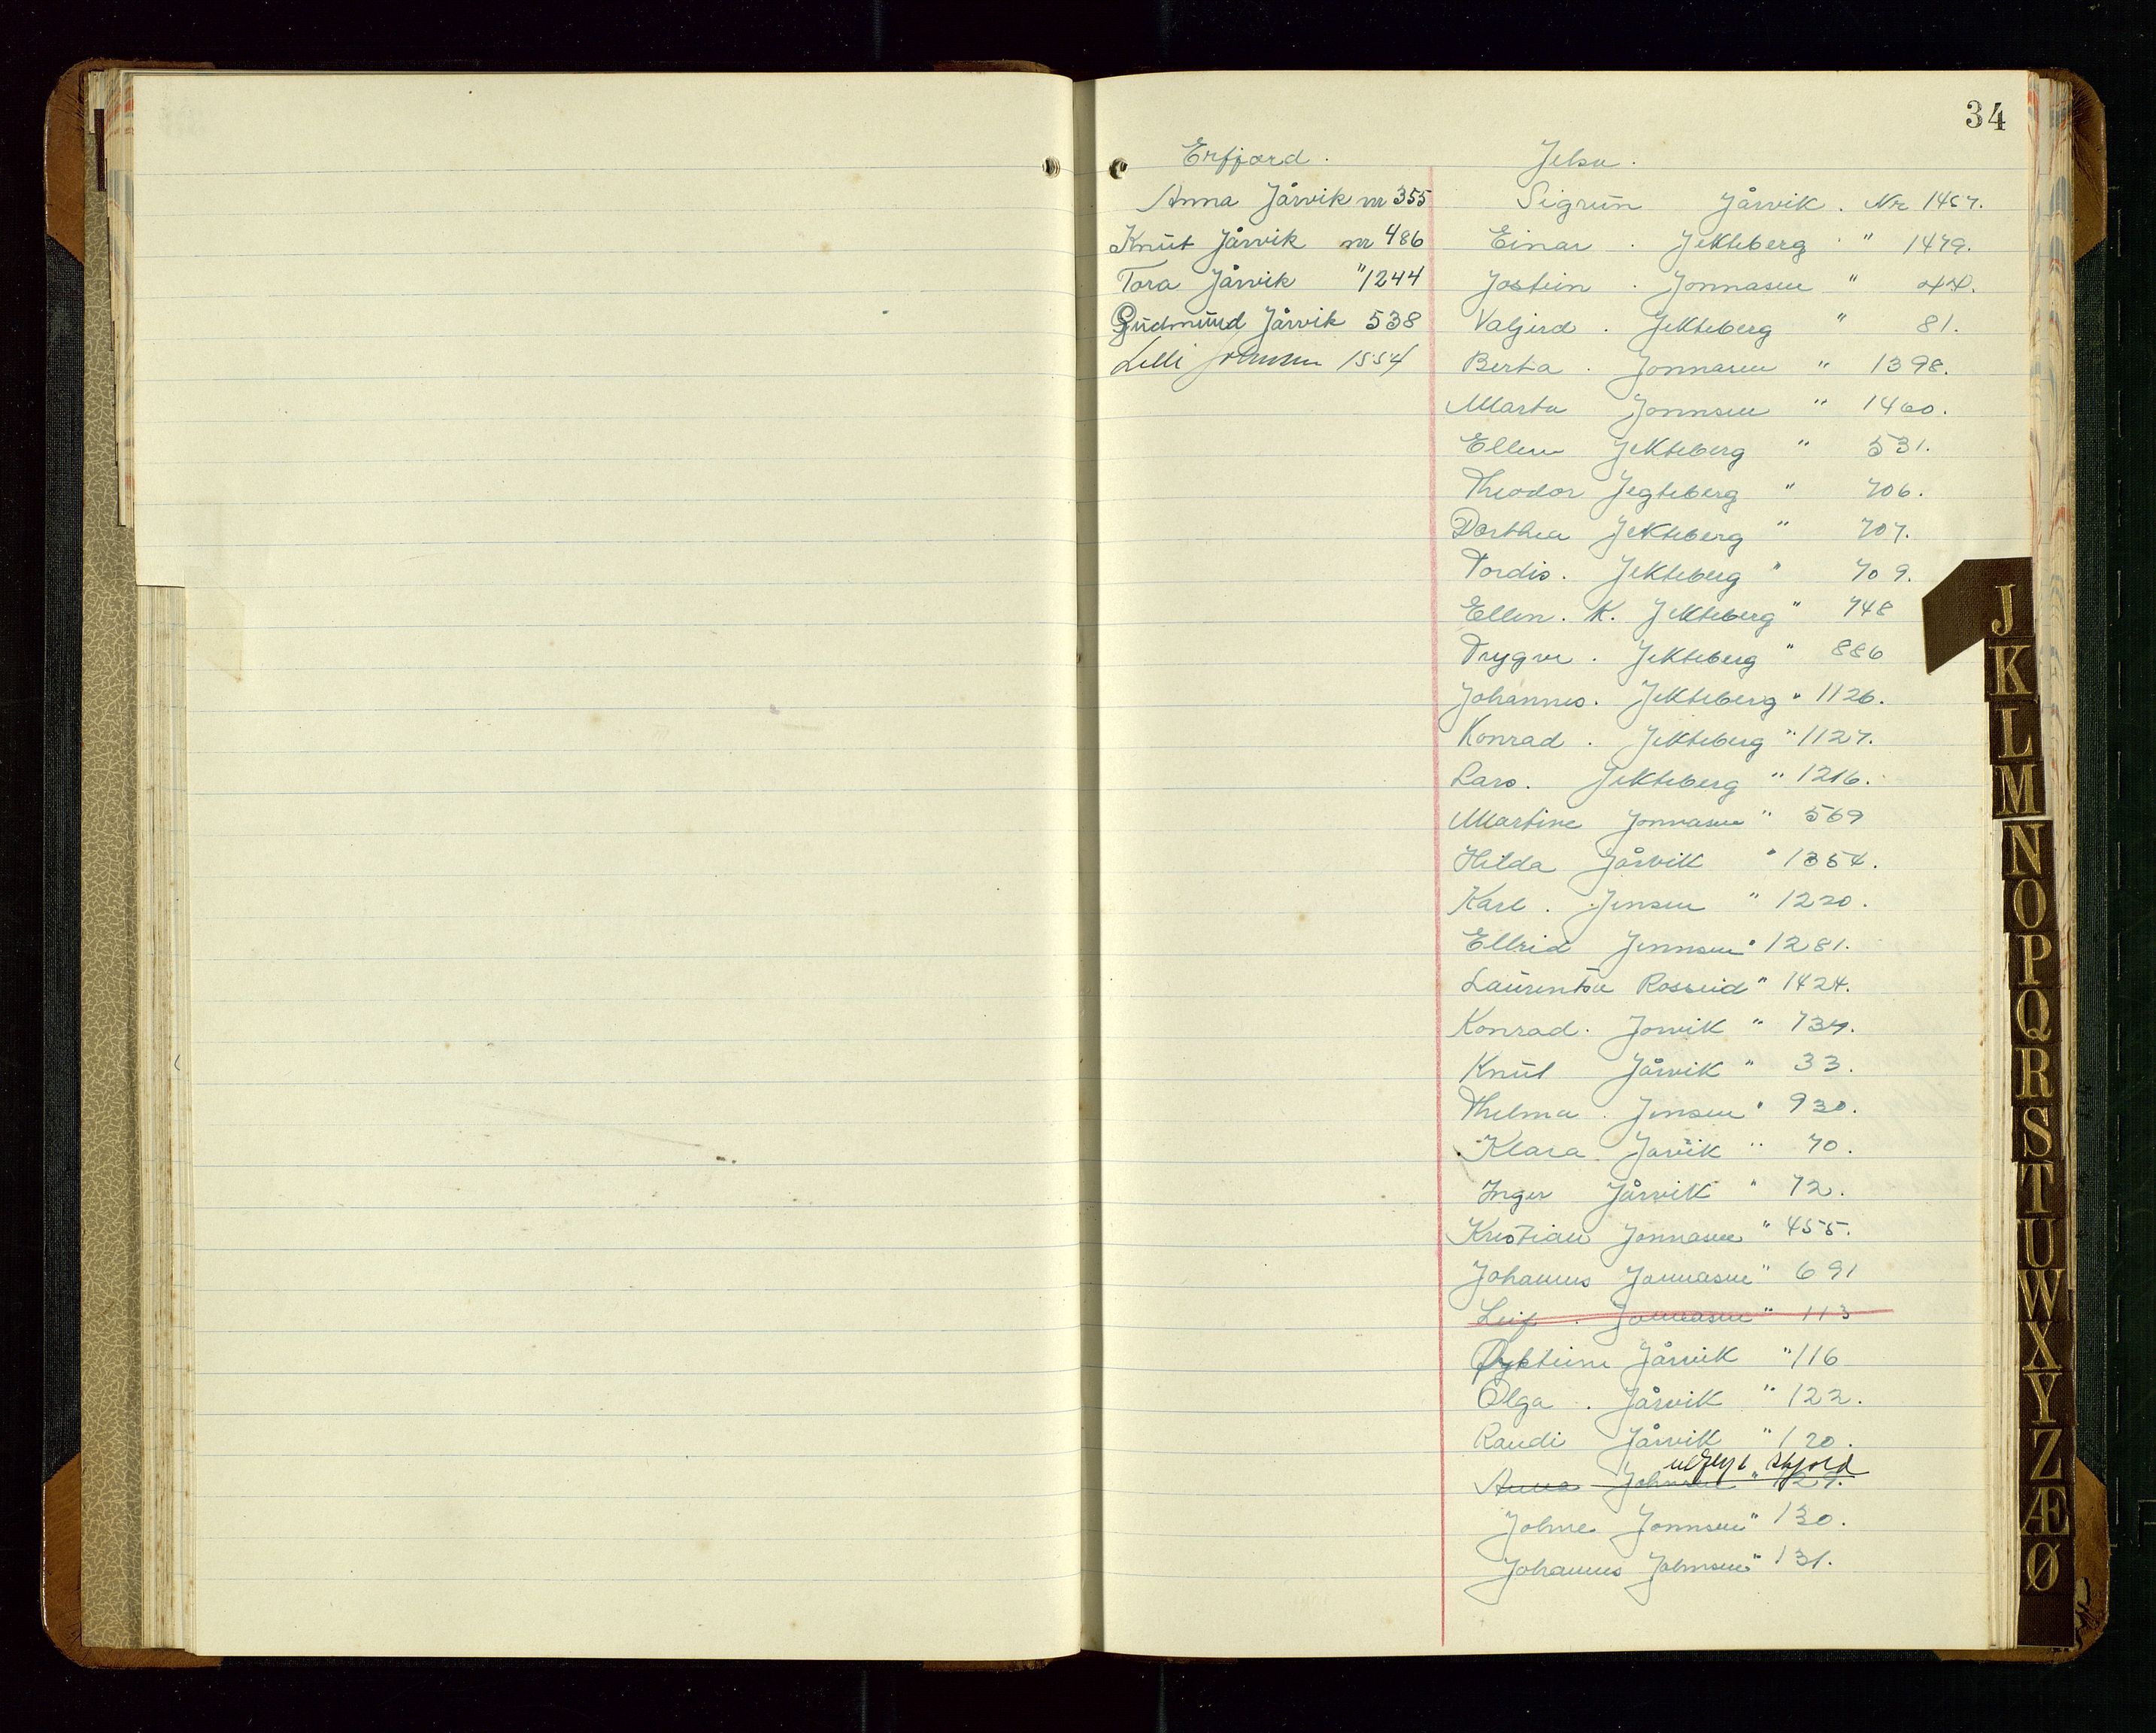 34
Erfjord.
Anna Jårvik nr 355
Knut Jårvik nr 486
Tora Jårvik " 1244
Gudmund Jårvik 538
Lilli 1554
Jelsa.
Sigrun Jårvik. Nr 1457.
Einar. Jekteberg " 1479.
Jostein. Jonnasen " 44.
Valgerd. Jekteberg " 81.
Berta. Jonnasen " 1398.
Marta Jonnsen " 1460.
Ellen Jekteberg " 531.
Theodor Jegteberg " 706.
Dorthea Jekteberg " 707.
Tordis. Jekteberg " 709.
Ellen. K. Jekteberg " 748
Trygve. Jekteberg " 886
Johannes. Jekteberg " 1126.
Konrad. Jekteberg " 1127.
Lars. Jekteberg " 1216.
Martine Jonnasen " 569
Hilda Jårvik " 1354.
Karl. Jensen " 1220.
Ellrid Jennsen " 1281.
Laurentse Rosseid " 1424.
Konrad. Jorvik " 737.
Knut Jårvik " 33.
Thelma. Jensen " 930.
Klara Jarvik " 70.
Inger Jårvik " 72.
Kristian Jonnasen " 455.
Johannes Jonnasen " 691
Leif. Jonnasen " 113
Øystein Jårvik " 116
Olga. Jårvik " 122.
Randi Jårvik " 120.
utflyt Skjold
Anna Johnsen " 127.
Johne Jonnsen " 130.
Johannes Johnsen " 131.
J
K
L
M
N
O
P
Q
R
S
T
U
W
X
Y
Z
Æ
Ø